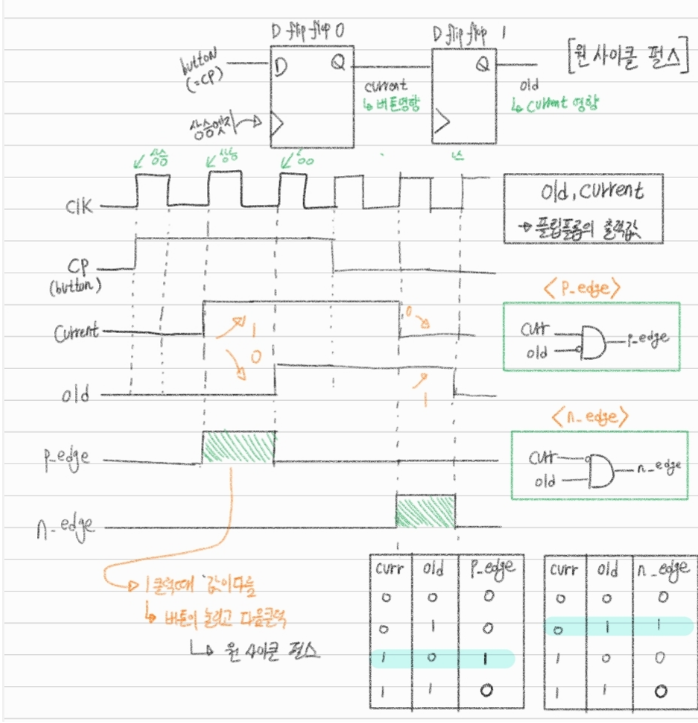 D flip flop 0
D flip flop 1
[원 사이클 펄스]
button
(=CP)
D
Q
Q
current
↳ 버튼영향
old
↳ Current 영향
상승엣지
상승
상승
clk
old, current
→ 플립플롭의 출력값
CP
(button)
<P_edge>
curr
old
p_edge
Current
1
0
0
old
1
<n_edge>
curr
old
n_edge
p_edge
n_edge
1클럭때 값이 다름
↳ 버튼이 눌리고 다음클럭
↳ 원 사이클 펄스
curr old p_edge
0 0 0
0 1 0
1 0 1
1 1 0
curr old n_edge
0 0 0
0 1 1
1 0 0
1 1 0